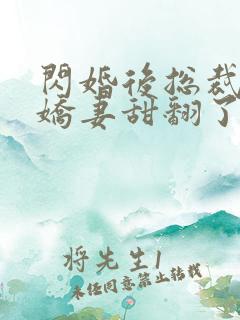 閃婚後总裁
嬌妻甜翻了
将先生1
未经同意禁止转载